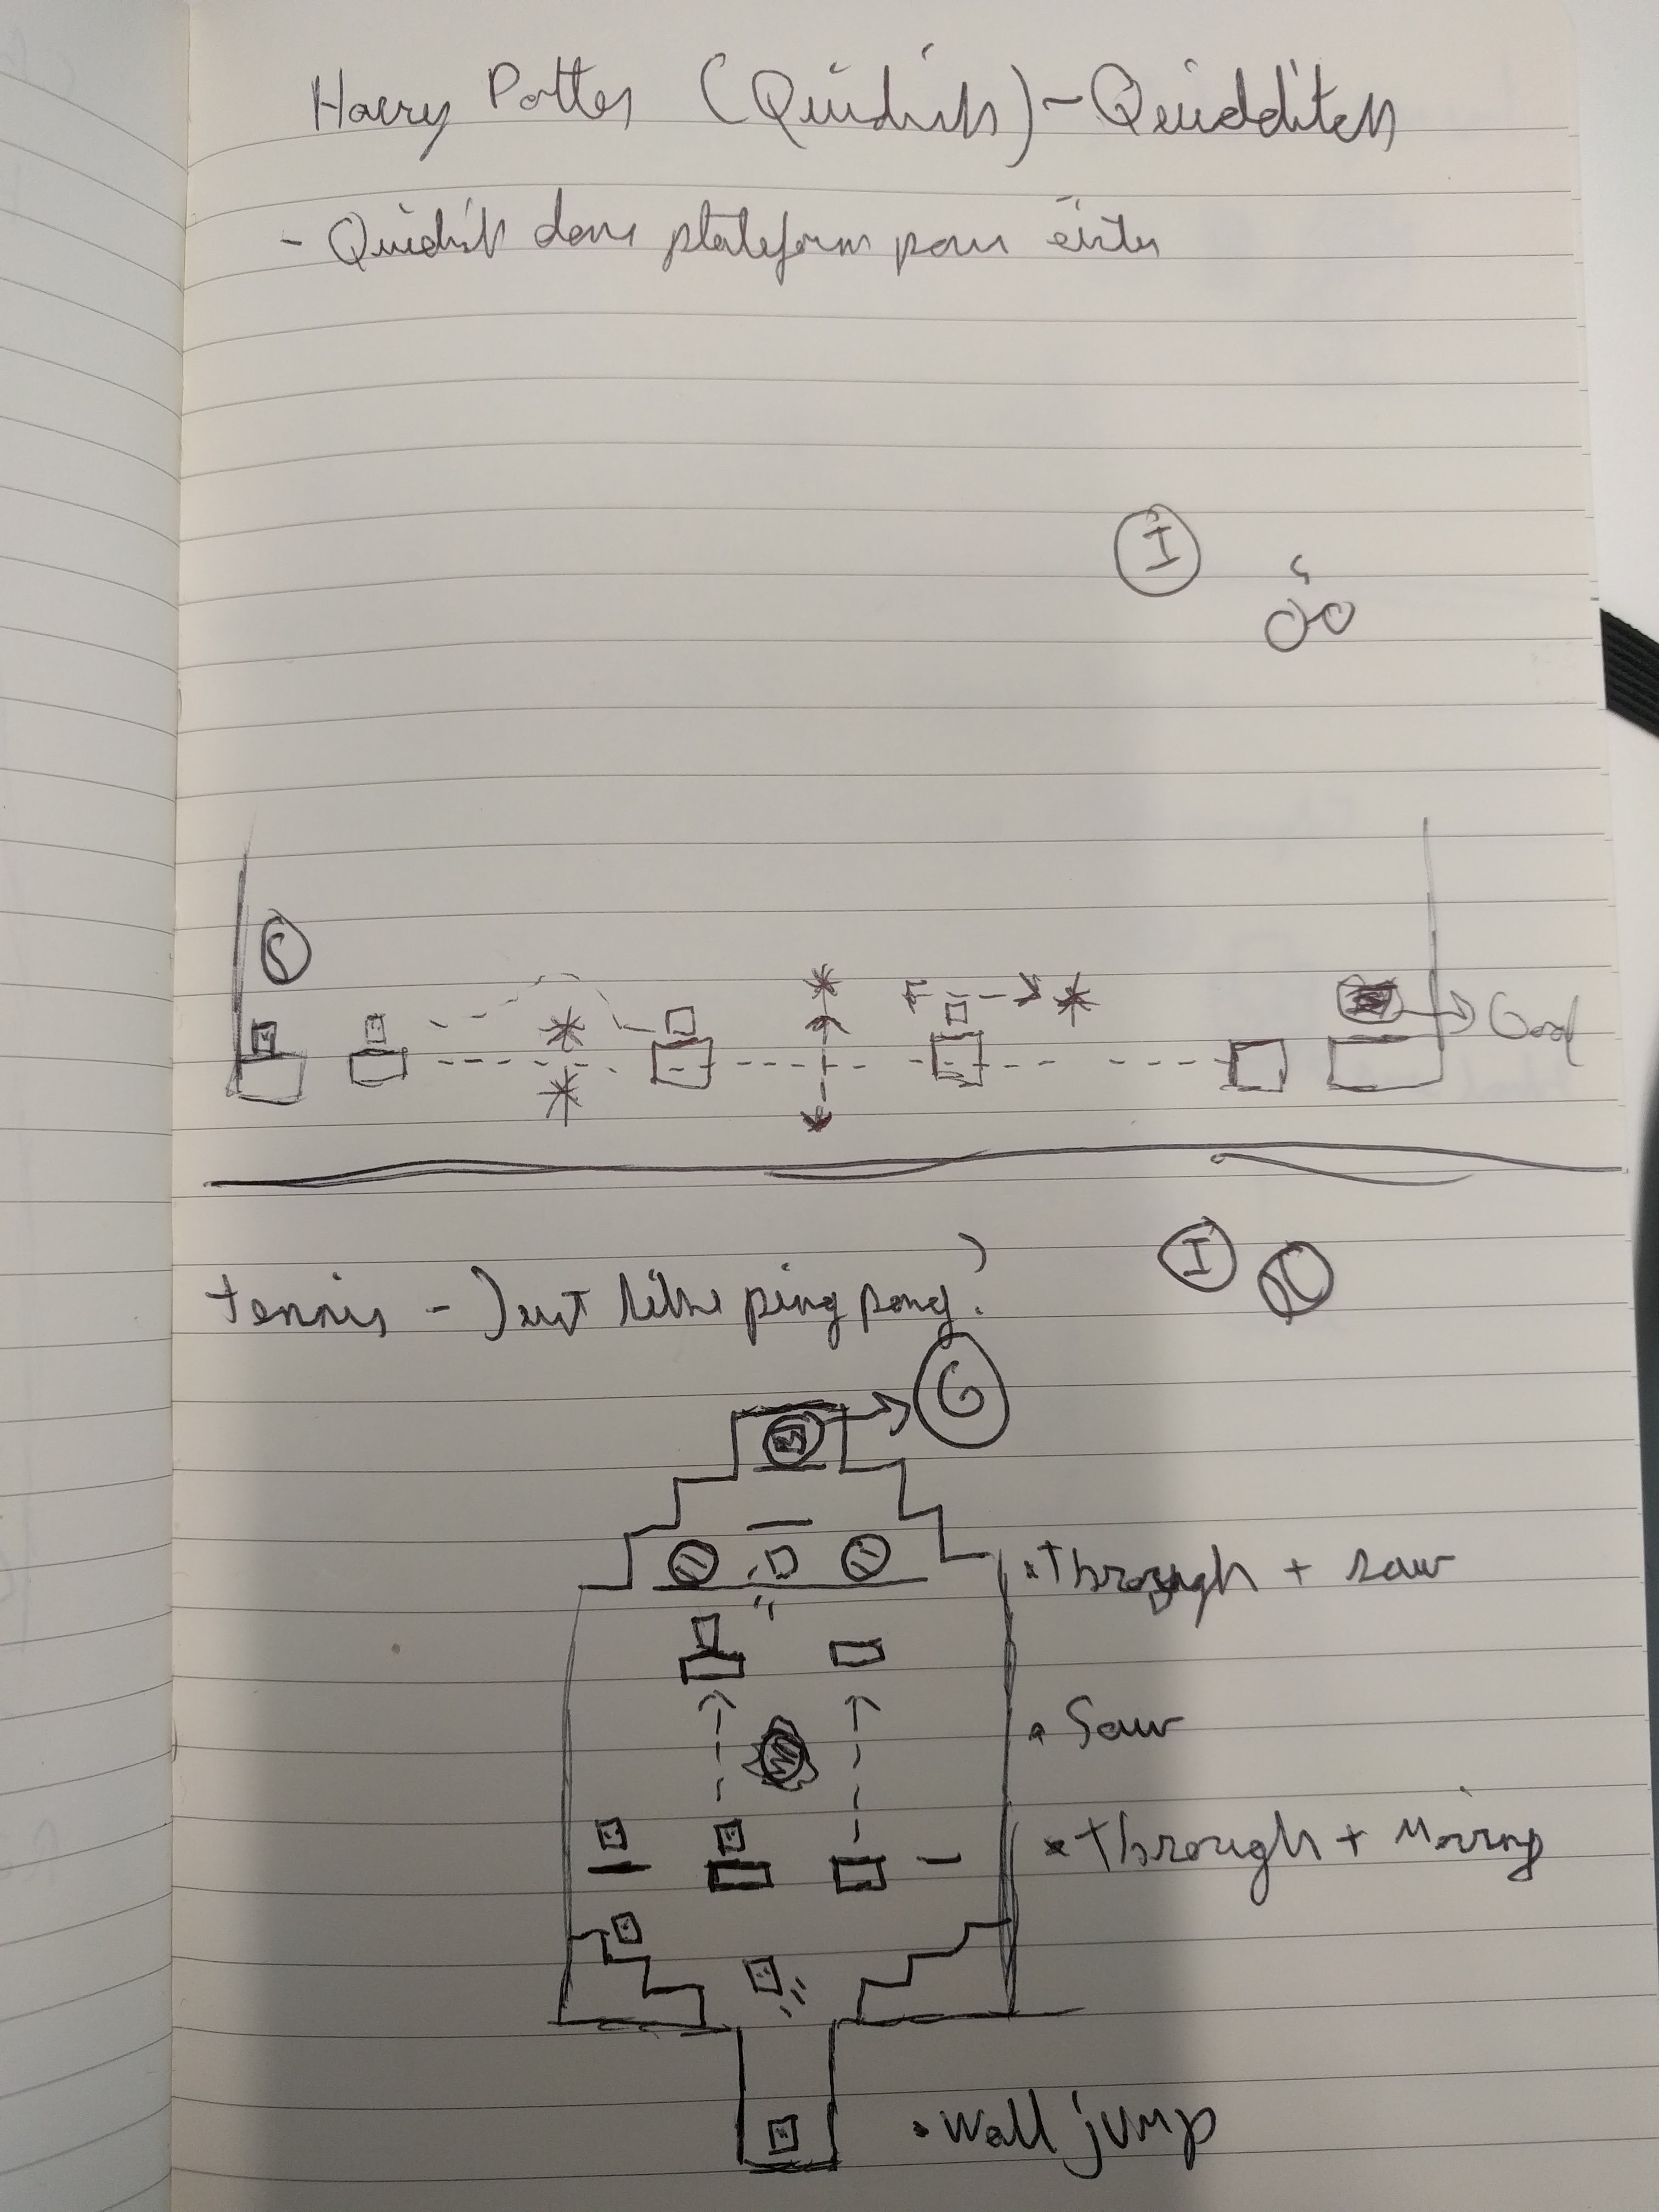 Harry Potter (Quidish) - Quidditch
- Quidish dans plateform pour éviter
I
S
Goal
tennis - Just like ping pong?
I
G
* through + saw
* Saw
* through + Moving
• Wall jump